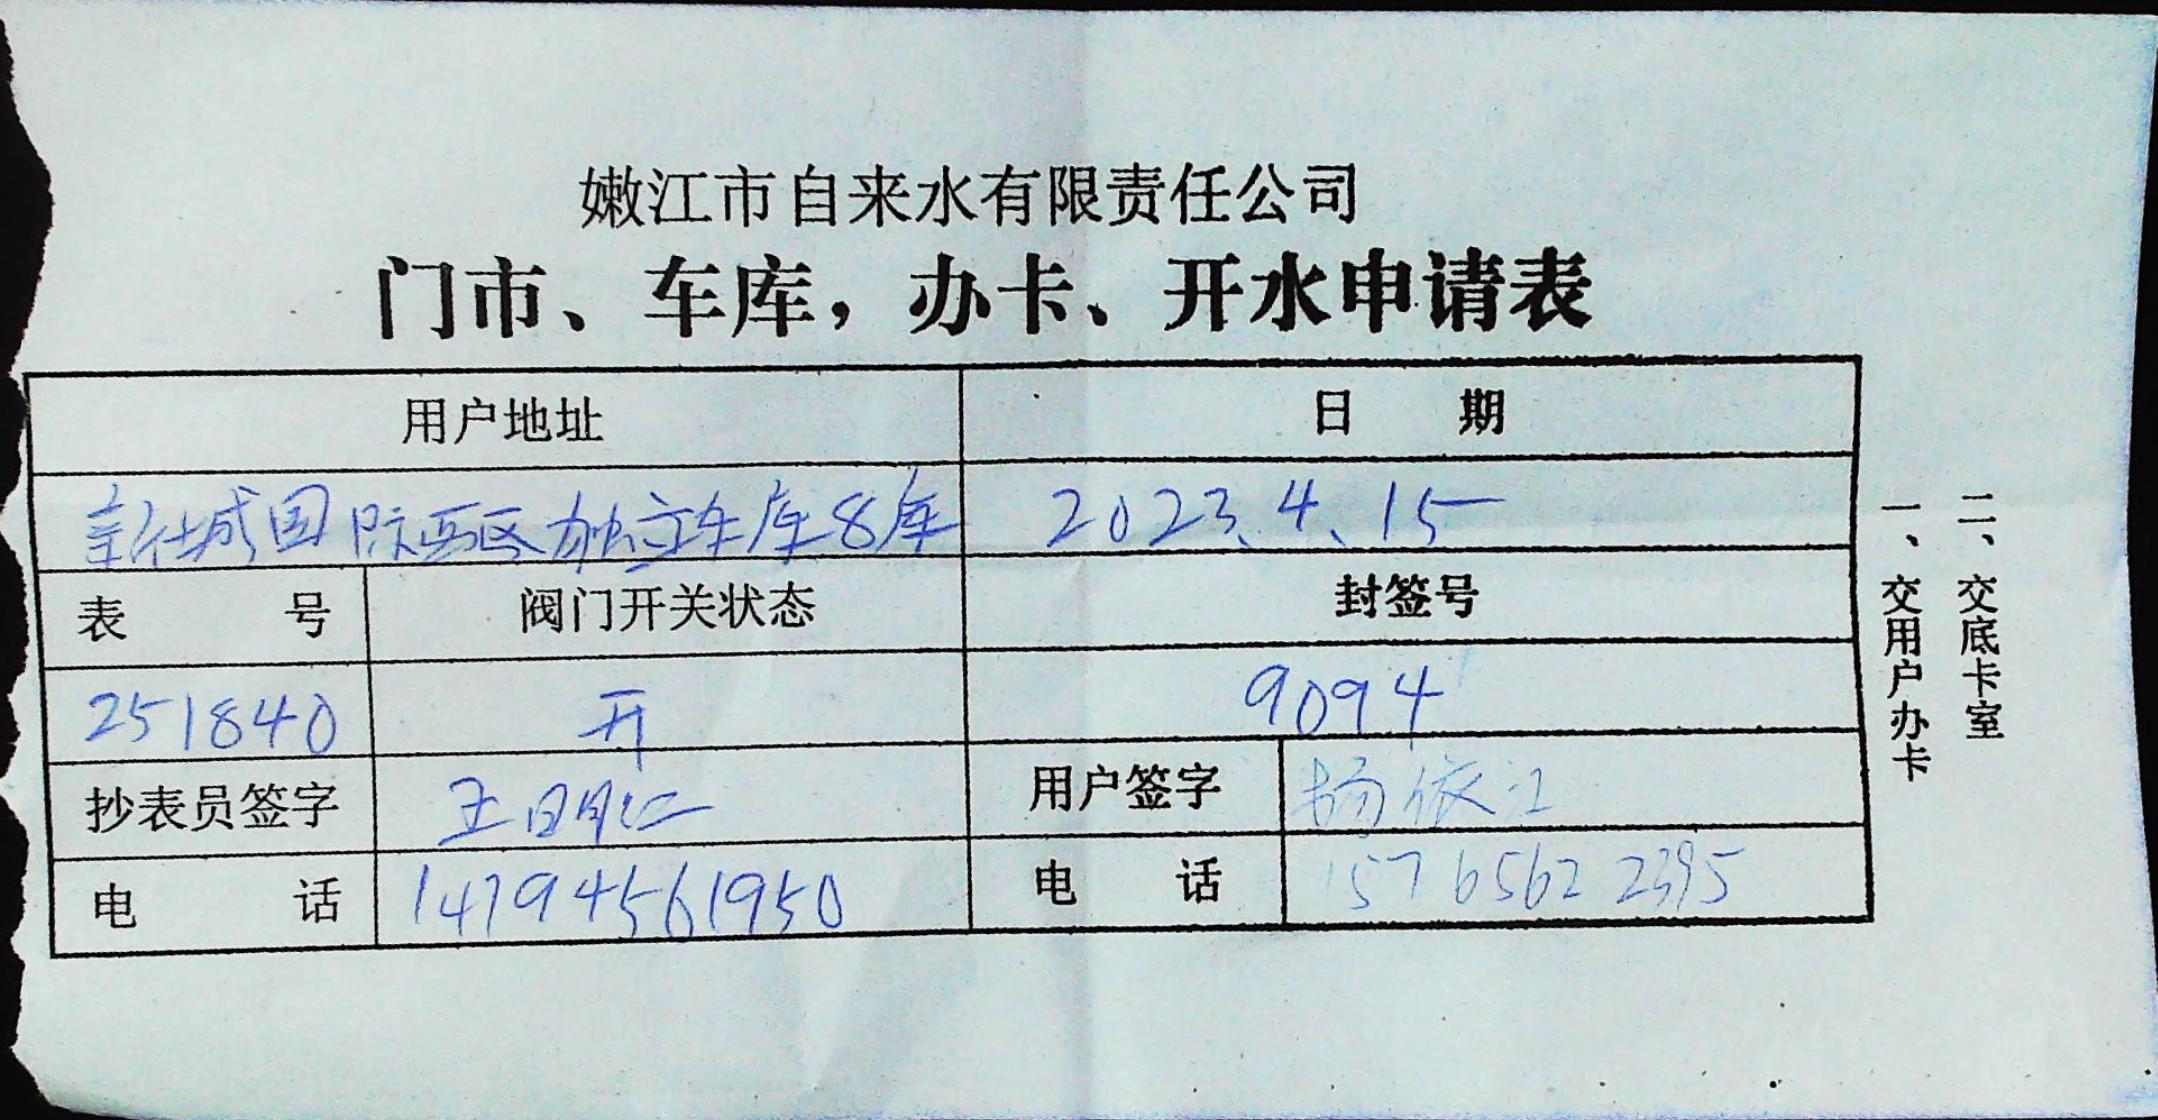 嫩江市自来水有限责任公司
门市、车库，办卡、开水申请表
用户地址 日 期
新城国际西区独立车库8库 2023.4.15
表 号 阀门开关状态 封签号
251840 开 9094
抄表员签字 王明仁 用户签字 杨依江
电 话 14794561950 电 话 15765622395
一、交用户办卡
二、交底卡室